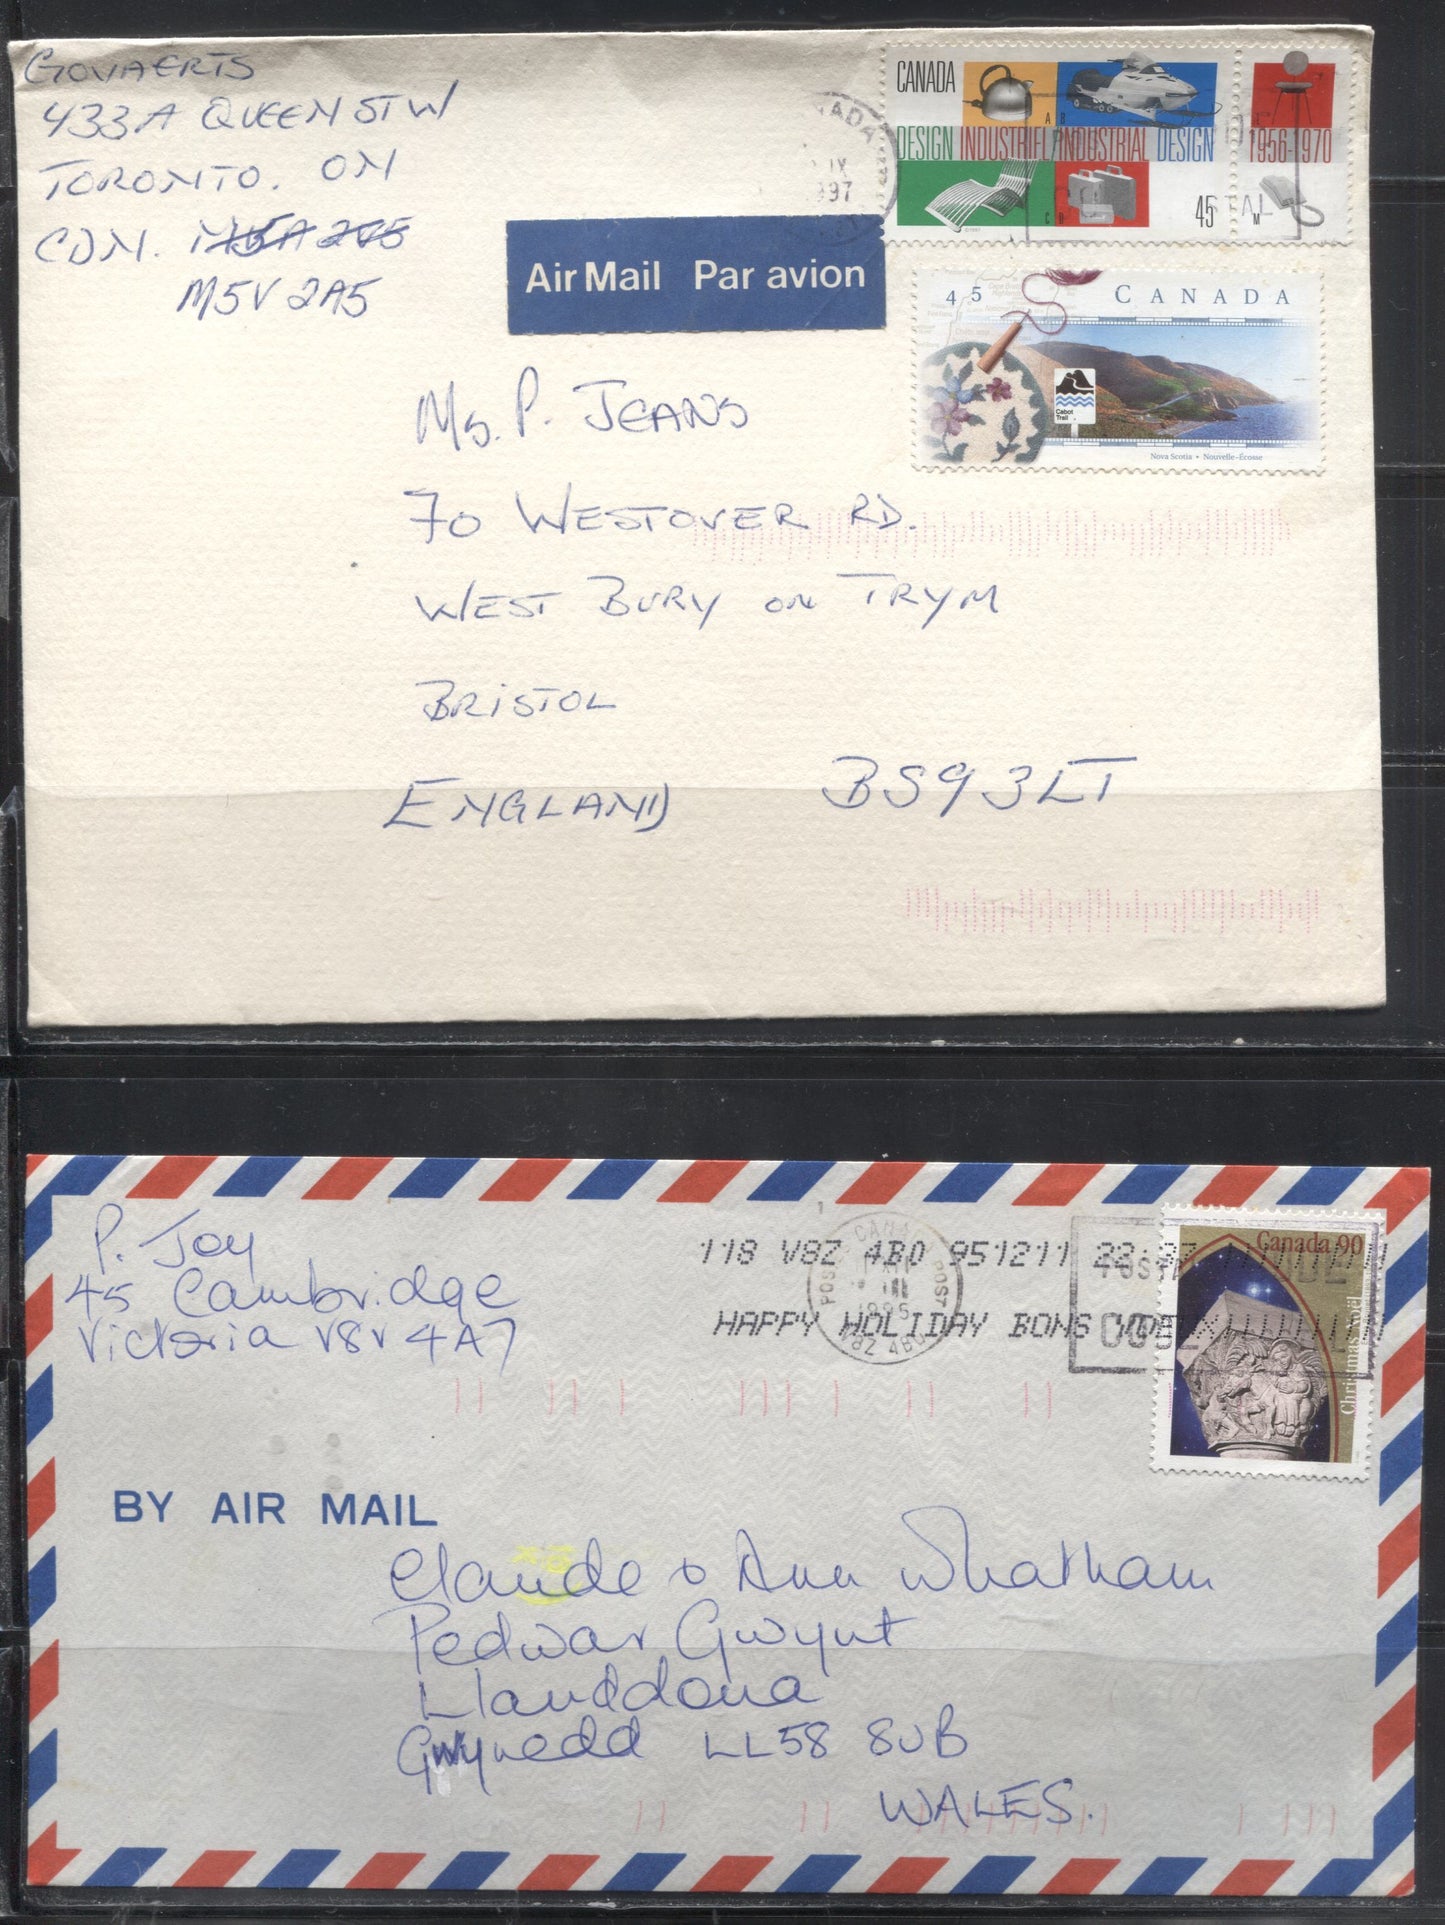 GOVAERTS
433A QUEEN ST W
TORONTO. ON
CDN.
M5V 2A5
Air Mail Par avion
CANADA
DESIGN INDUSTRIEL INDUSTRIAL DESIGN 1956-1970
A B
C D
45
M
©1997
ADA
IX
997
TAL
45 CANADA
Cabot
Trail
Nova Scotia • Nouvelle-Écosse
Ms. P. JEANS
70 WESTOVER RD.
WEST BURY ON TRYM
BRISTOL
ENGLAND BS9 3LT
P. Joy
45 Cambridge
Victoria V8V 4A7
118 V8Z 4B0 951211 22:27
HAPPY HOLIDAY BONS VOEUX
CANA
POST
1995
V8Z 4B0
Canada 90
Christmas Noël
BY AIR MAIL
Claude & Ann Whatham
Pedwar Gwynt
Llanddona
Gwynedd LL58 8UB
WALES.